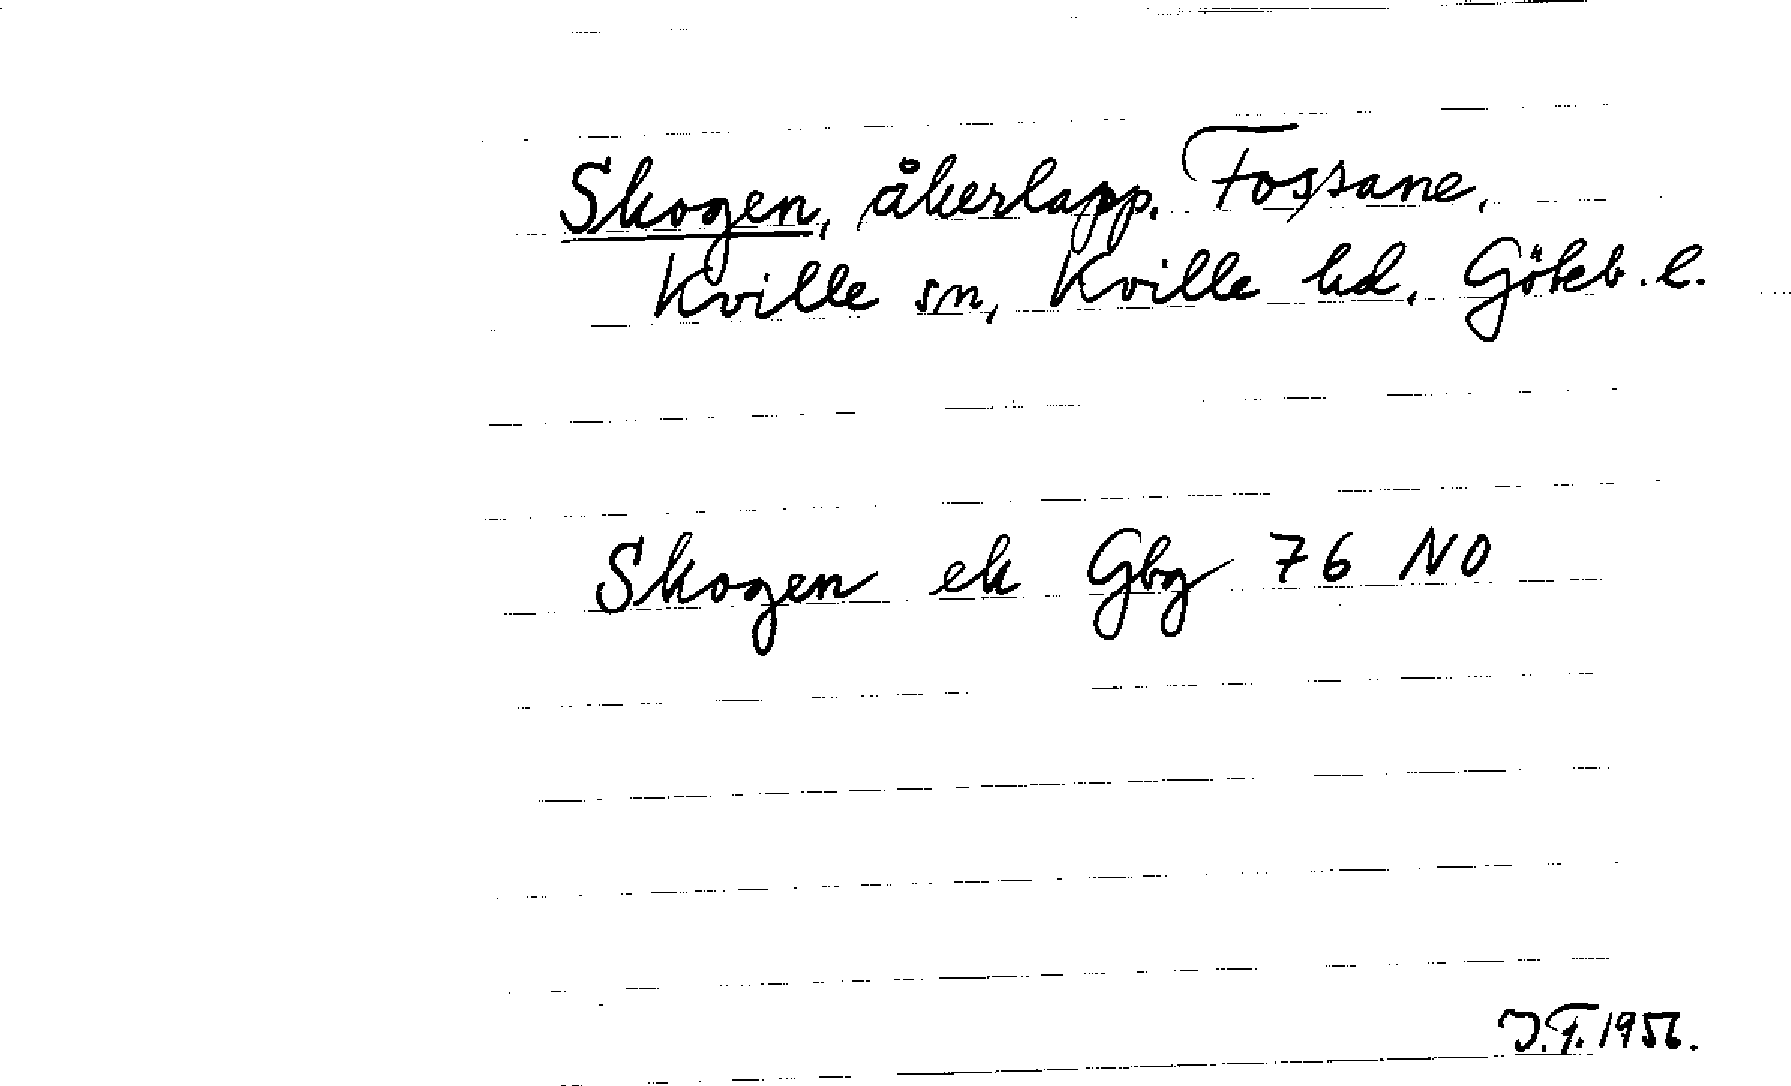 Skogen, åkerlapp. Fossane,
Kville sn, Kville hd, Göteb. l.
Skogen ek Gbg 76 NO
J.F. 1956.